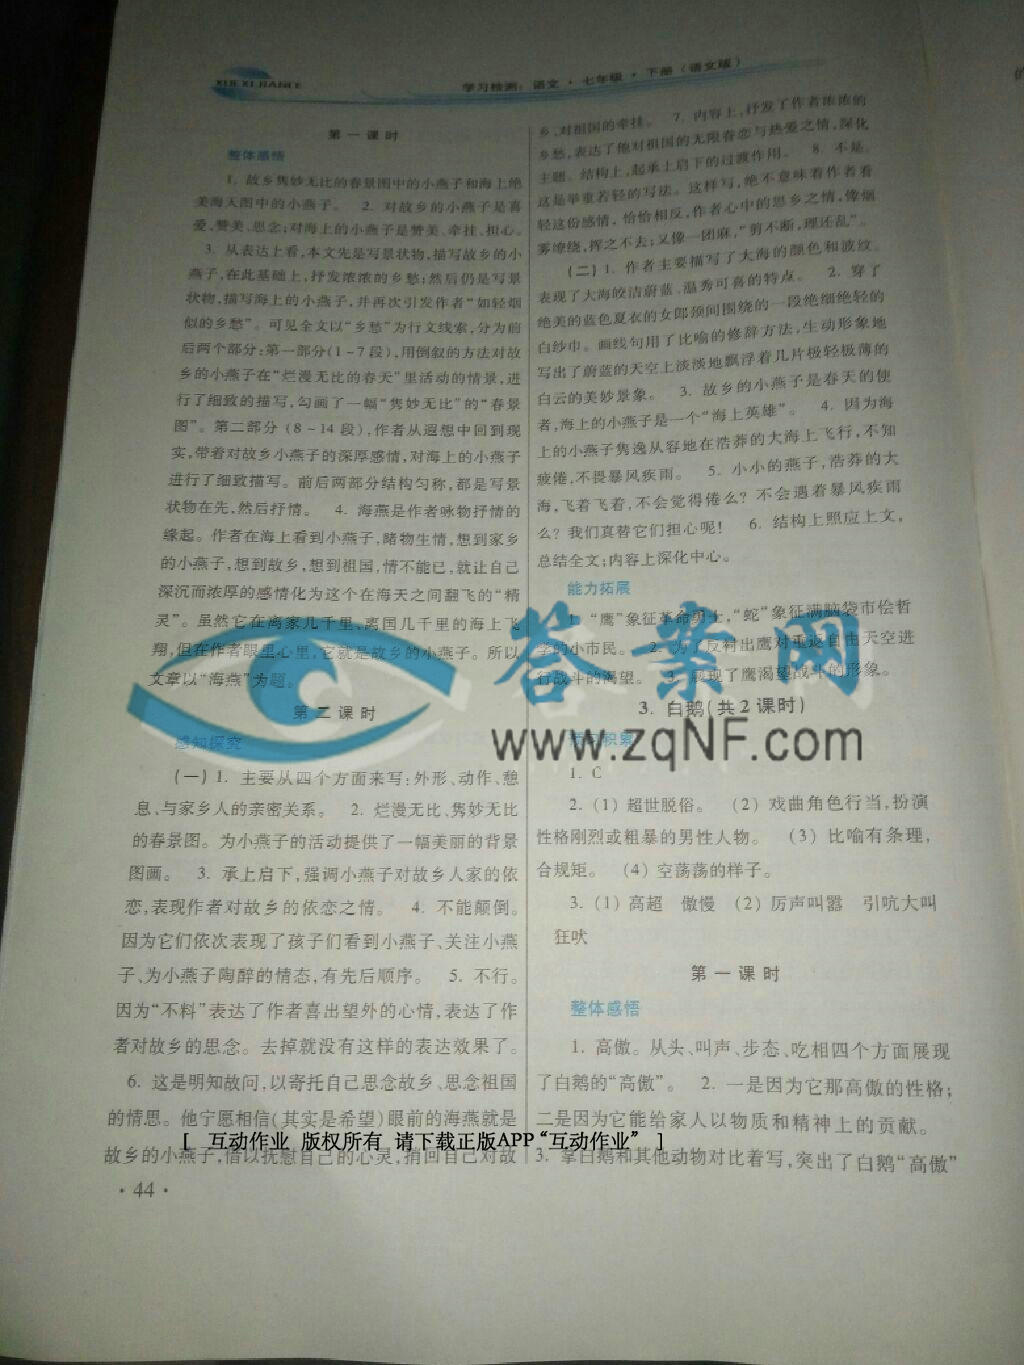 XUE XI JIANCE
学习检测·语文·七年级·下册(语文版)
第一课时
整体感悟
1. 故乡隽妙无比的春景图中的小燕子和海上绝
美海天图中的小燕子。 2. 对故乡的小燕子是喜
爱,赞美、思念;对海上的小燕子是赞美、牵挂、担心。
3. 从表达上看,本文先是写景状物,描写故乡的小
燕子,在此基础上,抒发浓浓的乡愁;然后仍是写景
状物,描写海上的小燕子,并再次引发作者“如轻烟
似的乡愁”。可见全文以“乡愁”为行文线索,分为前
后两个部分:第一部分(1-7段),用倒叙的方法对故
乡的小燕子在“烂漫无比的春天”里活动的情景,进
行了细致的描写,勾画了一幅“隽妙无比”的“春景
图”。第二部分(8-14段),作者从遐想中回到现
实,带着对故乡小燕子的深厚感情,对海上的小燕子
进行了细致描写。前后两部分结构匀称,都是写景
状物在先,然后抒情。 4. 海燕是作者咏物抒情的
缘起。作者在海上看到小燕子,睹物生情,想到家乡
的小燕子,想到故乡,想到祖国,情不能已,就让自己
深沉而浓厚的感情化为这个在海天之间翻飞的“精
灵”。虽然它在离家几千里、离国几千里的海上飞
翔,但在作者眼里心里,它就是故乡的小燕子。所以
文章以“海燕”为题。
第二课时
感知探究
(一)1. 主要从四个方面来写:外形、动作、憩
息、与家乡人的亲密关系。 2. 烂漫无比、隽妙无比
的春景图。为小燕子的活动提供了一幅美丽的背景
图画。 3. 承上启下,强调小燕子对故乡人家的依
恋,表现作者对故乡的依恋之情。 4. 不能颠倒。
因为它们依次表现了孩子们看到小燕子、关注小燕
子、为小燕子陶醉的情态,有先后顺序。 5. 不行。
因为“不料”表达了作者喜出望外的心情,表达了作
者对故乡的思念。去掉就没有这样的表达效果了。
6. 这是明知故问,以寄托自己思念故乡、思念祖国
的情思。他宁愿相信(其实是希望)眼前的海燕就是
故乡的小燕子,借以抚慰自己的心灵,捎回自己对故
·44·
乡、对祖国的牵挂。 7. 内容上,抒发了作者浓浓的
乡愁,表达了他对祖国的无限眷恋与热爱之情,深化
主题。结构上,起承上启下的过渡作用。 8. 不是。
这是举重若轻的写法。这样写,绝不意味着作者看
轻这份感情,恰恰相反,作者心中的思乡之情,像烟
雾缭绕,挥之不去;又像一团麻,“剪不断,理还乱”。
(二)1. 作者主要描写了大海的颜色和波纹。
表现了大海皎洁蔚蓝、温秀可喜的特点。 2. 穿了
绝美的蓝色夏衣的女郎颈间围绕的一段绝细绝轻的
白纱巾。画线句用了比喻的修辞方法,生动形象地
写出了蔚蓝的天空上淡淡地飘浮着几片极轻极薄的
白云的美妙景象。 3. 故乡的小燕子是春天的使
者,海上的小燕子是一个“海上英雄”。 4. 因为海
上的小燕子隽逸从容地在浩莽的大海上飞行,不知
疲倦,不畏暴风疾雨。 5. 小小的燕子,浩莽的大
海,飞着飞着,不会觉得倦么?不会遇着暴风疾雨
么?我们真替它们担心呢! 6. 结构上照应上文,
总结全文;内容上深化中心。
能力拓展
1. “鹰”象征革命勇士,“蛇”象征满脑袋市侩哲
学的小市民。 2. 为了反衬出鹰对重返自由天空进
行战斗的渴望。 3. 展现了鹰渴望战斗的形象。
3. 白鹅(共2课时)
预习积累
1. C
2. (1) 超世脱俗。 (2) 戏曲角色行当,扮演
性格刚烈或粗暴的男性人物。 (3) 比喻有条理,
合规矩。 (4) 空荡荡的样子。
3. (1) 高超 傲慢 (2) 厉声叫嚣 引吭大叫
狂吠
第一课时
整体感悟
1. 高傲。从头、叫声、步态、吃相四个方面展现
了白鹅的“高傲”。 2. 一是因为它那高傲的性格;
二是因为它能给家人以物质和精神上的贡献。
3. 拿白鹅和其他动物对比着写,突出了白鹅“高傲”
答案网
www.zqNF.com
[ 互动作业 版权所有 请下载正版APP“互动作业” ]